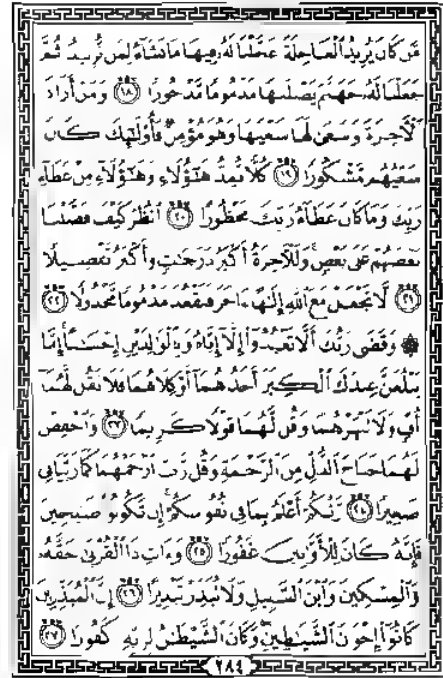 مَّن كَانَ يُرِيدُ ٱلْعَاجِلَةَ عَجَّلْنَا لَهُۥ فِيهَا مَا نَشَآءُ لِمَن نُّرِيدُ ثُمَّ
جَعَلْنَا لَهُۥ جَهَنَّمَ يَصْلَىٰهَا مَذْمُومًا مَّدْحُورًا ١٨ وَمَنْ أَرَادَ
ٱلْءَاخِرَةَ وَسَعَىٰ لَهَا سَعْيَهَا وَهُوَ مُؤْمِنٌ فَأُو۟لَٰٓئِكَ كَانَ
سَعْيُهُم مَّشْكُورًا ١٩ كُلًّا نُّمِدُّ هَٰٓؤُلَآءِ وَهَٰٓؤُلَآءِ مِنْ عَطَآءِ
رَبِّكَ وَمَا كَانَ عَطَآءُ رَبِّكَ مَحْظُورًا ٢٠ ٱنظُرْ كَيْفَ فَضَّلْنَا
بَعْضَهُمْ عَلَىٰ بَعْضٍ وَلَلْءَاخِرَةُ أَكْبَرُ دَرَجَٰتٍ وَأَكْبَرُ تَفْضِيلًا
٢١ لَّا تَجْعَلْ مَعَ ٱللَّهِ إِلَٰهًا ءَاخَرَ فَتَقْعُدَ مَذْمُومًا مَّخْذُولًا ٢٢
۞ وَقَضَىٰ رَبُّكَ أَلَّا تَعْبُدُوٓا۟ إِلَّآ إِيَّاهُ وَبِٱلْوَٰلِدَيْنِ إِحْسَٰنًا إِمَّا
يَبْلُغَنَّ عِندَكَ ٱلْكِبَرَ أَحَدُهُمَآ أَوْ كِلَاهُمَا فَلَا تَقُل لَّهُمَآ
أُفٍّ وَلَا تَنْهَرْهُمَا وَقُل لَّهُمَا قَوْلًا كَرِيمًا ٢٣ وَٱخْفِضْ
لَهُمَا جَنَاحَ ٱلذُّلِّ مِنَ ٱلرَّحْمَةِ وَقُل رَّبِّ ٱرْحَمْهُمَا كَمَا رَبَّيَانِى
صَغِيرًا ٢٤ رَّبُّكُمْ أَعْلَمُ بِمَا فِى نُفُوسِكُمْ إِن تَكُونُوا۟ صَٰلِحِينَ
فَإِنَّهُۥ كَانَ لِلْأَوَّٰبِينَ غَفُورًا ٢٥ وَءَاتِ ذَا ٱلْقُرْبَىٰ حَقَّهُۥ
وَٱلْمِسْكِينَ وَٱبْنَ ٱلسَّبِيلِ وَلَا تُبَذِّرْ تَبْذِيرًا ٢٦ إِنَّ ٱلْمُبَذِّرِينَ
كَانُوٓا۟ إِخْوَٰنَ ٱلشَّيَٰطِينِ وَكَانَ ٱلشَّيْطَٰنُ لِرَبِّهِۦ كَفُورًا ٢٧
٢٨٤